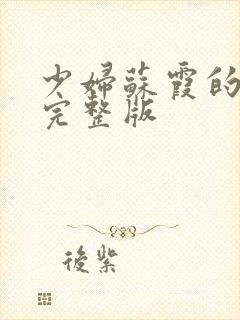 少婦蘇霞的
完整版
後紫